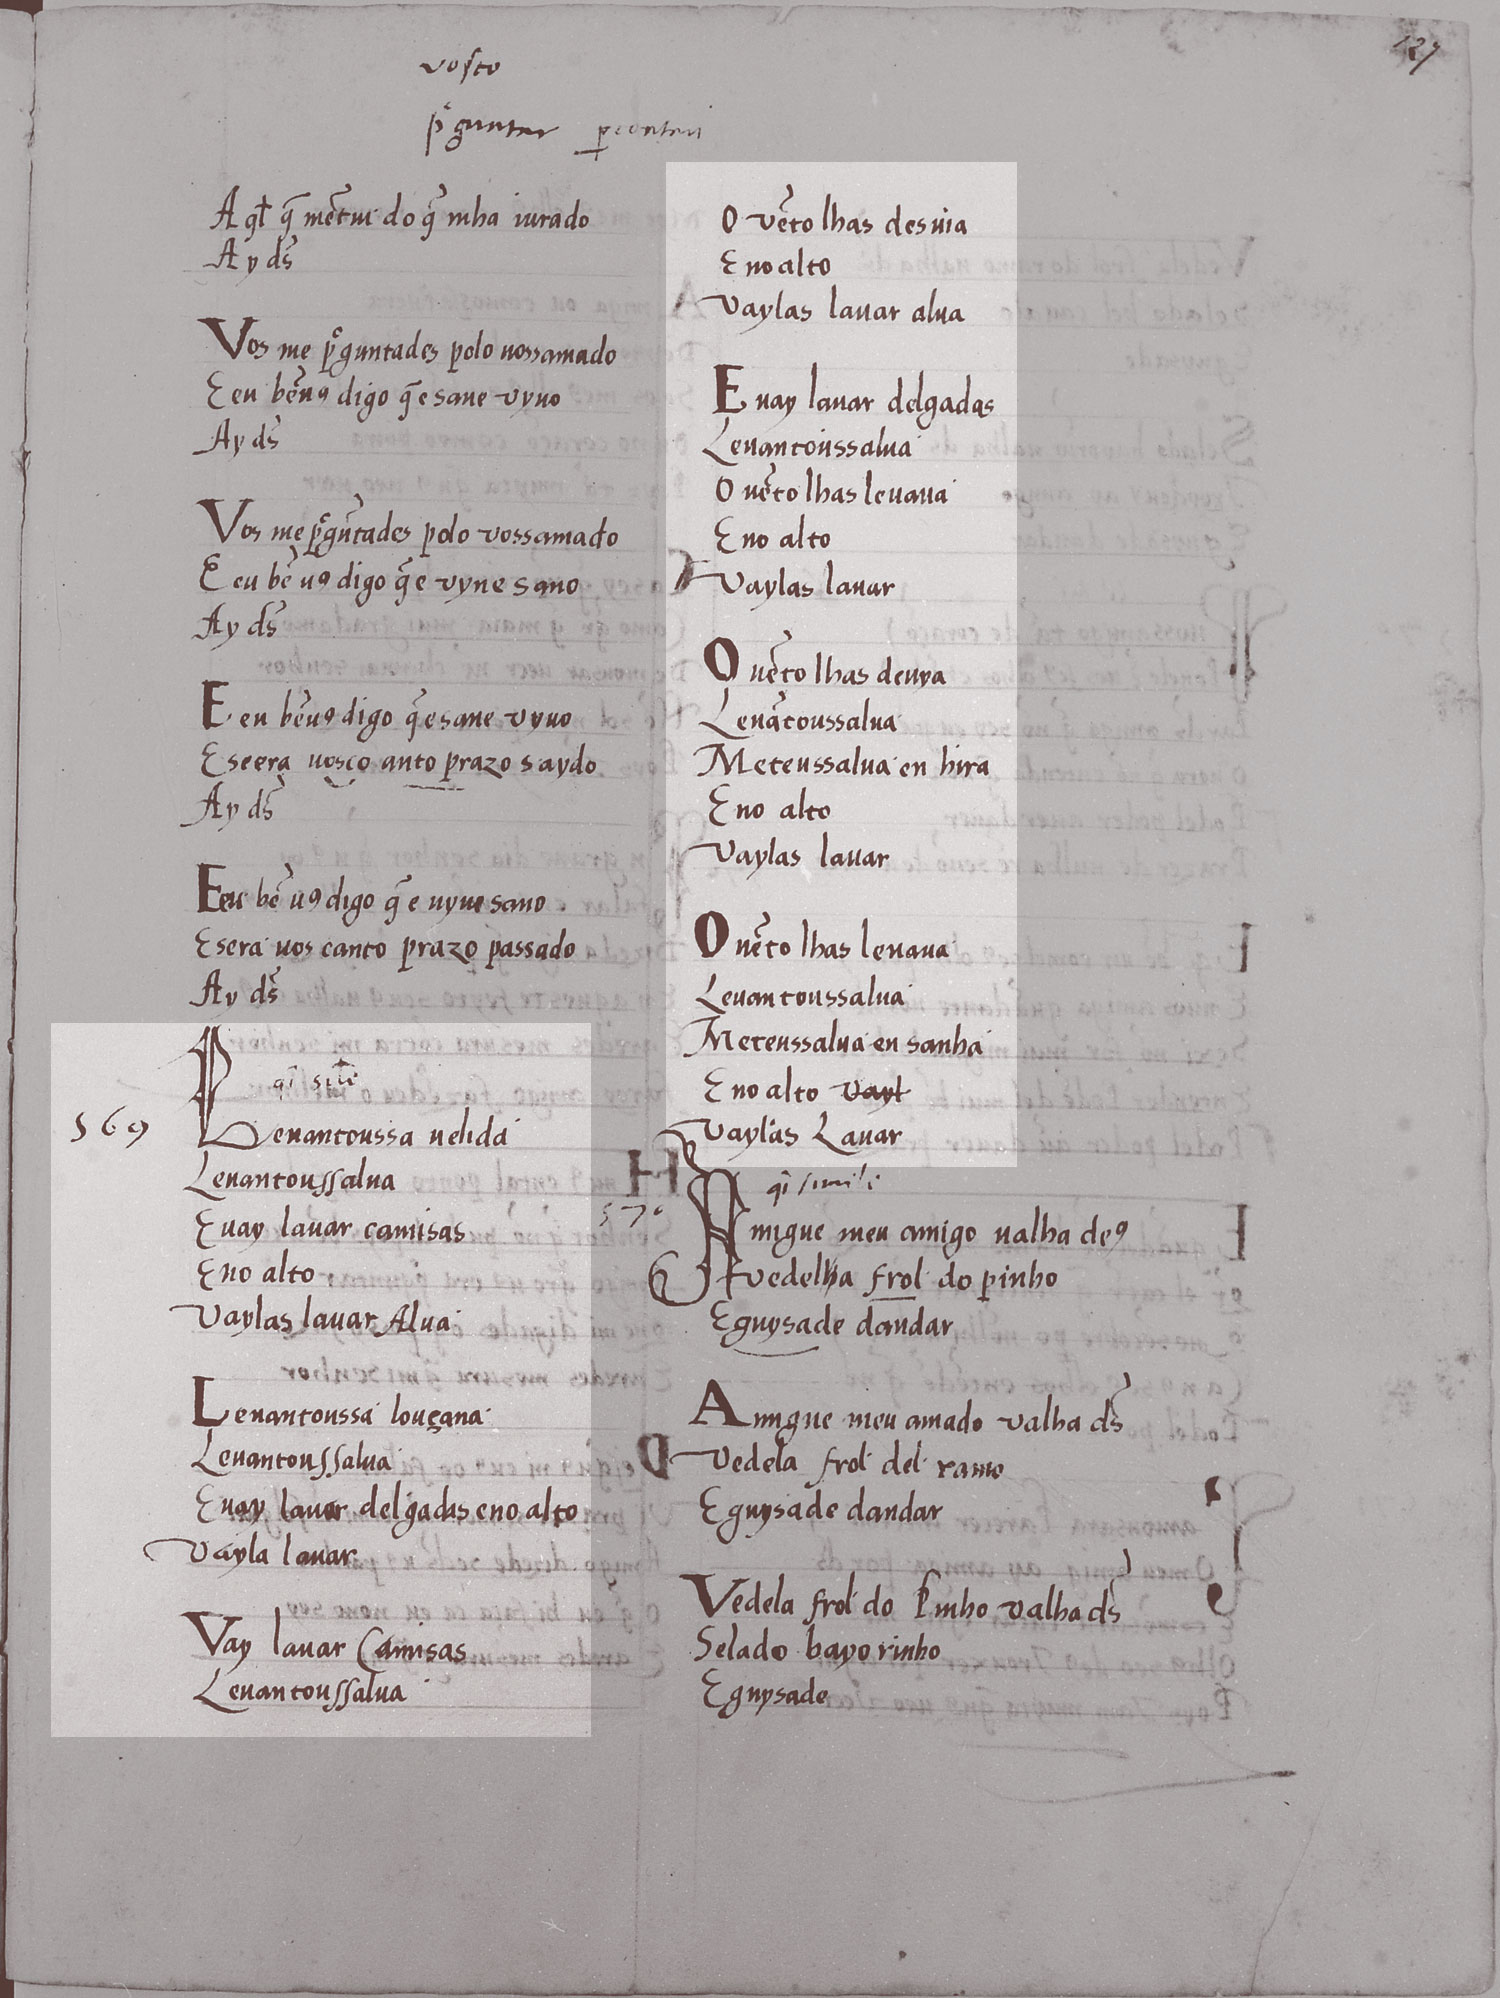 127
vosco
p̃guntar
A ql̃ q̃ mẽtiu do q̃ mha iurado
Ay ds̃
Vos me p̃guntades polo uossamado
E eu bẽ uꝯ digo q̃ e sane vyuo
Ay ds̃
Vos me p̃gũtades polo vossamado
E eu bẽ uꝯ digo q̃ e vyue sano
Ay ds̃
E eu bẽ uꝯ digo q̃ e sane vyuo
E seera uosco anto prazo saydo
Ay ds̃
E eu bẽ uꝯ digo q̃ e uyue sano
E sera uos canto prazo passado
Ay ds̃
569
Leuantoussa uelida
Leuantoussalua
E uay lauar camisas
E no alto
Vaylas lauar Alua
Leuantoussa louçana
Leuantoussalua
E uay lauar delgadas eno alto
Vayla lauar
Vay lauar Camisas
Leuantoussalua
O vẽto lhas desuia
E no alto
Vaylas lauar alua
E uay lauar delgadas
Leuantoussalua
O uẽto lhas leuaua
E no alto
Vaylas lauar
O uẽto lhas deuya
Leuãtoussalua
Meteussalua en hira
E no alto
Vaylas lauar
O uẽto lhas leuaua
Leuantoussalua
Meteussalua en sanha
E no alto vayl
Vaylas Lauar
570
qi simile
Amigue meu amigo ualha deꝯ
Vedelha frol do pinho
E guysade dandar
Amigue meu amado valha ds̃
Vedela frol del ramo
E guysade dandar
Vedela frol do Pinho valha ds̃
Selado bayorinho
E guysade